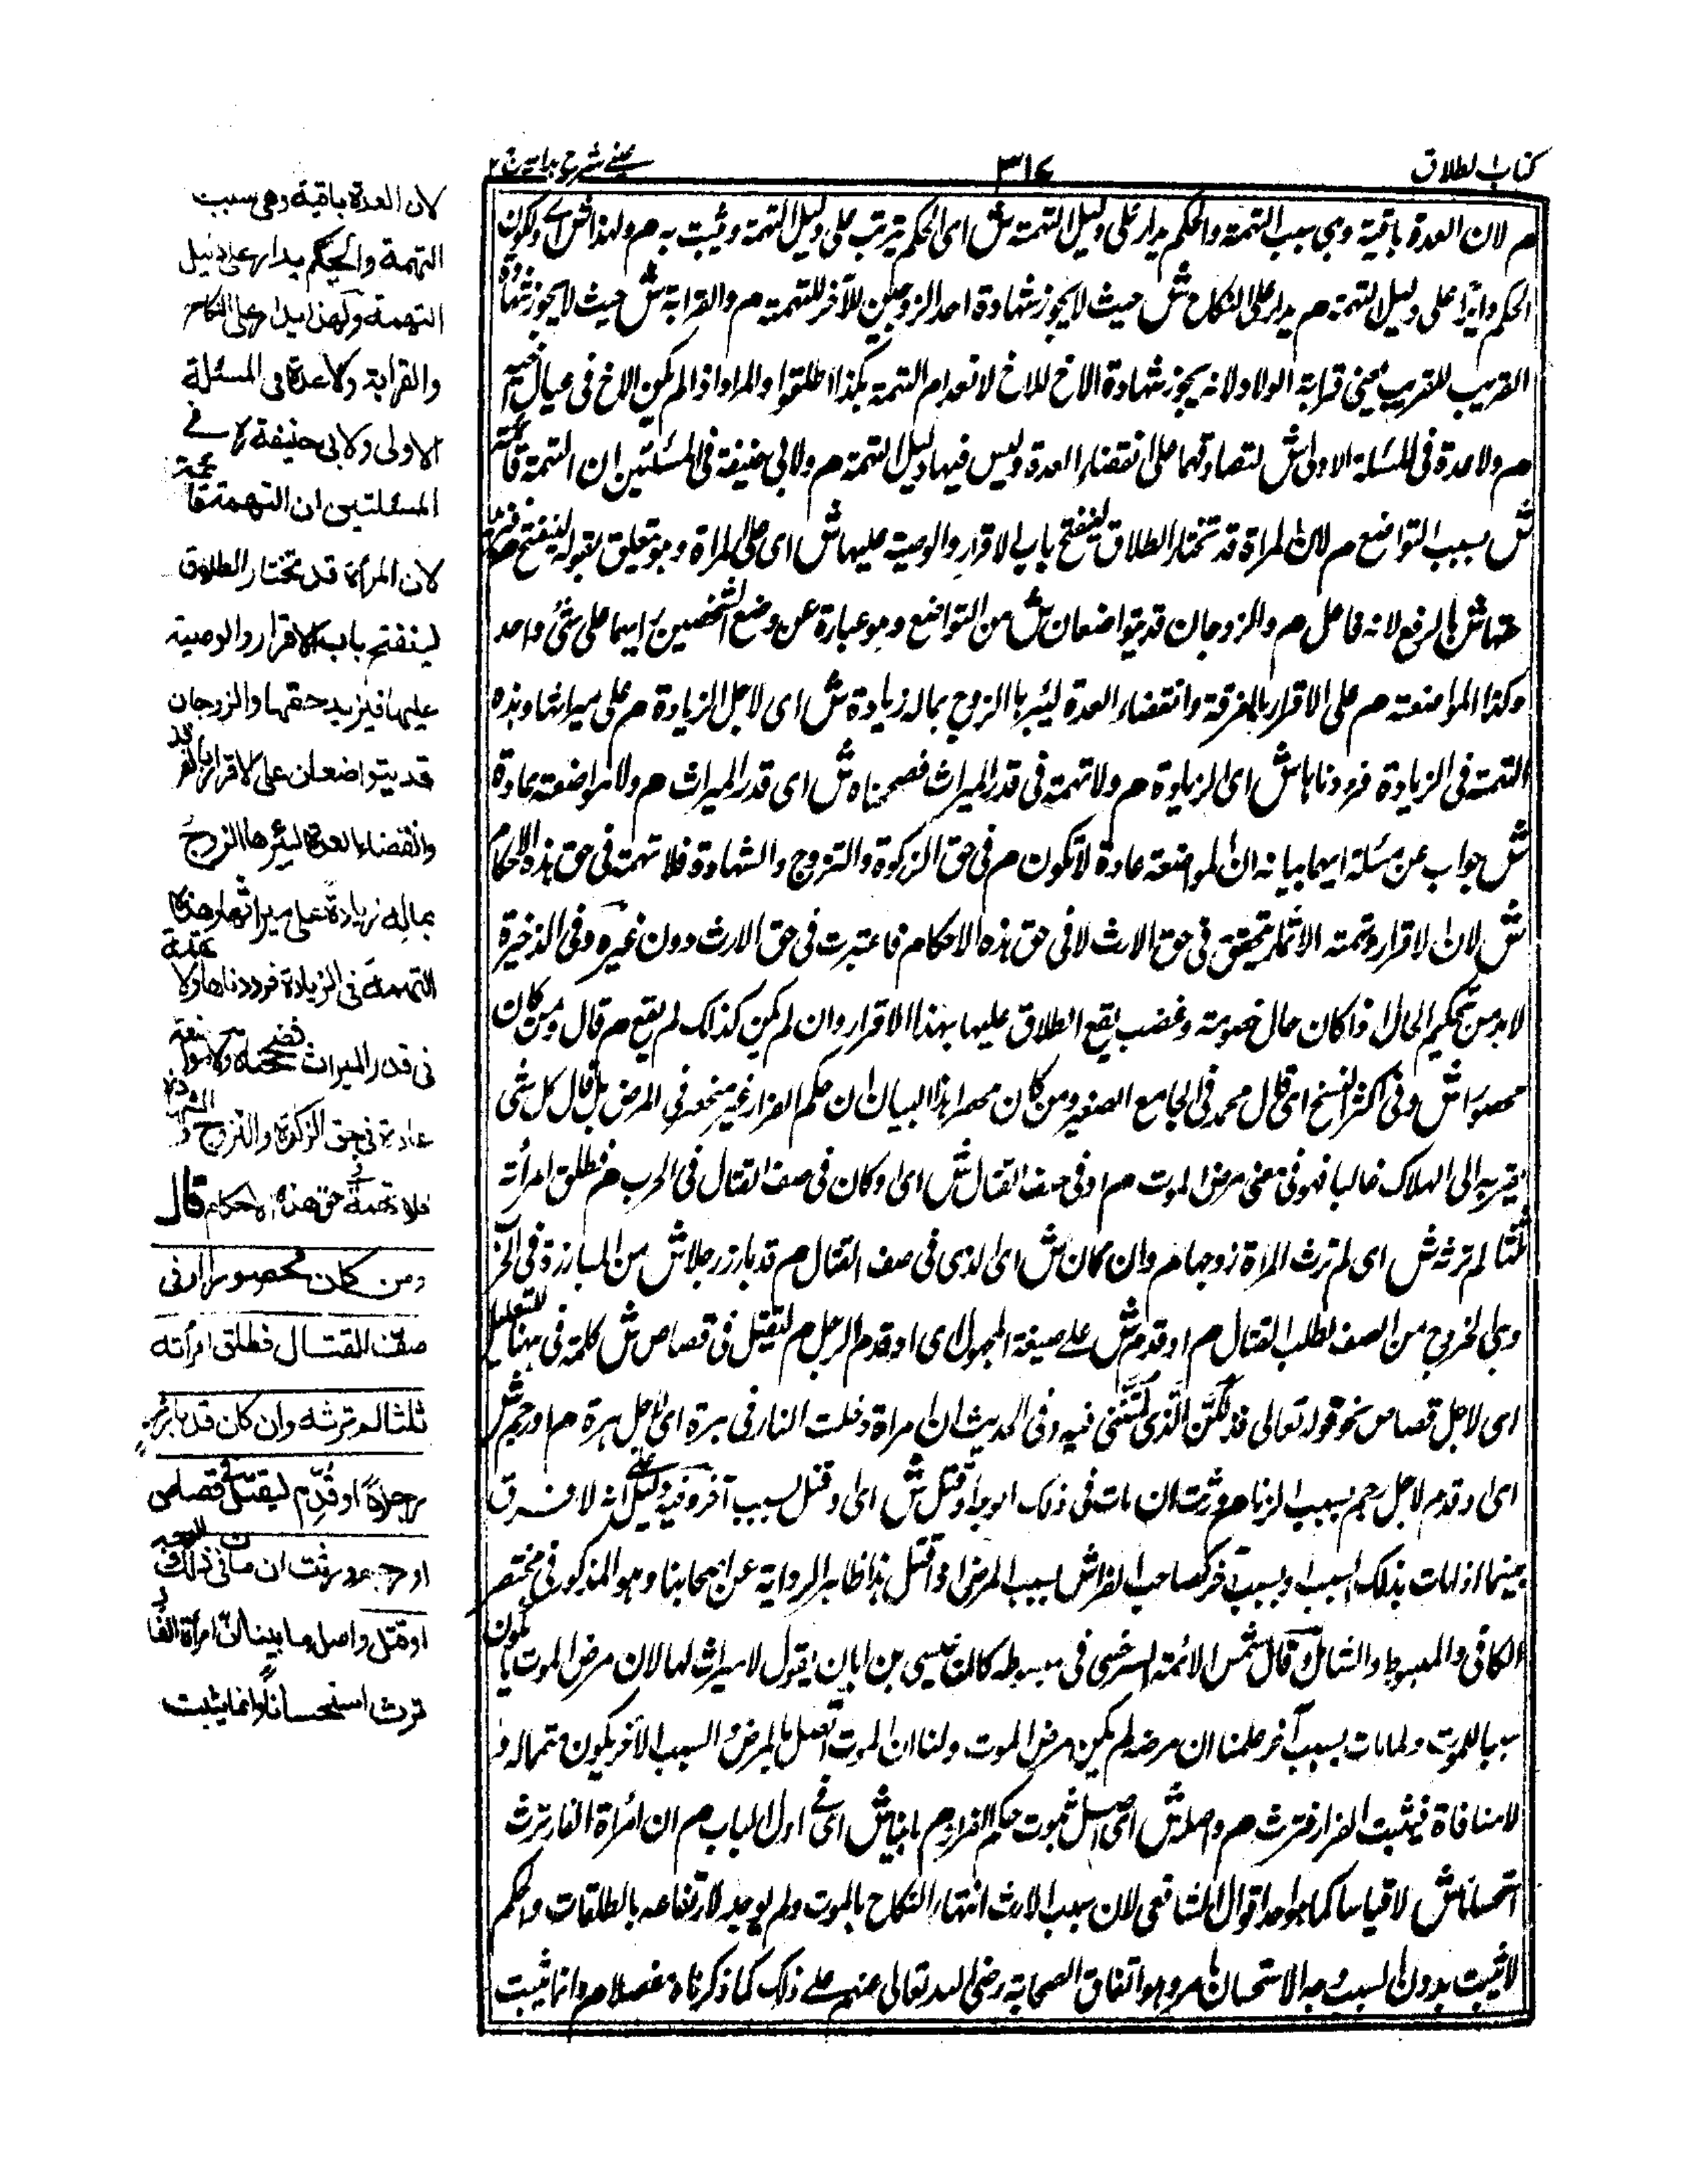 كتاب الطلاق
٣١٤
عينى شرح هداية ج ٢
م لان العدة باقية وهي سبب التهمة والحكم يدار على دليل التهمة ش اى الحكم يترتب على دليل التهمة ويثبت به م ولهذا ش اى ولكون
الحكم دايرا على دليل التهمة م يدار على النكاح ش حيث لا يجوز شهادة احد الزوجين للآخر للتهمة م والقرابة ش حيث لا يجوز شهادة
القريب للقريب يعنى قرابة الولاد لانه يجوز شهادة الاخ للاخ لانعدام التهمة هكذا اطلقوا والمراد اذا لم يكن الاخ فى عيال اخيه
م ولا عدة فى المسئلة الاولى ش لتصادقهما على انقضاء العدة وليس فيها دليل التهمة م ولابى حنيفة فى المسئلتين ان التهمة قائمة
ش بسبب التواضع م لان المراة قد تختار الطلاق لينفتح باب الاقرار والوصية عليها ش اى على المراة وهو متعلق بقوله لينفتح م فيزيد
حقها ش بالرفع لانه فاعل م والزوجان قد يتواضعان ش من التواضع وهو عبارة عن وضع الشخصين رايهما على شئ واحد
وكذا المواضعة م على الاقرار بالفرقة وانقضاء العدة ليبرها الزوج بماله زيادة ش اى لاجل الزيادة م على ميراثها وهذه
التهمة فى الزيادة فرددناها ش اى الزيادة م ولا تهمة فى قدر الميراث فصححناه ش اى قدر الميراث م ولا مواضعة عادة
ش جواب عن مسئلة ايهما بيانه ان المواضعة عادة لا تكون م فى حق الزكوة والتزوج والشهادة فلا تهمة فى حق هذه الاحكام
ش لان الاقرار وتهمة الايثار يتحقق فى حق الارث لا فى حق هذه الاحكام فاعتبرت فى حق الارث دون غيره وفى الذخيرة
لا بد من تحكيم الحال اذا كان حال خصومة وغضب يقع الطلاق عليها بهذا الاقرار وان لم يكن كذلك لم يقع م قال ومن كان
محصورا ش وفى اكثر النسخ اى قال محمد فى الجامع الصغير ومن كان محصرا هذا لبيان ان حكم الفرار غير منحصر فى المرض بل قال كل شى
يقربه الى الهلاك غالبا فهو فى معنى مرض الموت م او فى صف القتال ش اى او كان فى صف القتال فى الحرب م فطلق امرأته
ثلثا لم ترثه ش اى لم ترث المراة زوجها م وان كان ش اى الذى فى صف القتال م قد بارز رجلا ش من المبارزة فى الحرب
وهى الخروج من الصف لطلب القتال م او قدم ش على صيغة المجهول اى او قدم الرجل م ليقتل فى قصاص ش كلمة فى ههنا للتعليل
اى لاجل قصاص نحو قوله تعالى فذلكن الذى لمتننى فيه وفى الحديث ان امراة دخلت النار فى هرة اى لاجل هرة م او رجم ش
اى او قدم لاجل رجم بسبب الزنا م ورثت ان مات فى ذلك الوجه او قتل ش اى او قتل بسبب آخر وفيه دليل على انه لا فرق
بينهما اذا مات بذلك السبب او بسبب آخر كصاحب الفراش بسبب المرض اذا قتل هذا ظاهر الرواية عن اصحابنا وهو المذكور فى مختصر
الكافى والمبسوط والشامل وقال شمس الائمة السرخسى فى مبسوطه كان عيسى بن ابان يقول لا ميراث لها لان مرض الموت ما يكون
سببا للموت ولما مات بسبب آخر علمنا ان مرضه لم يكن مرض الموت ولنا ان الموت اتصل بالمرض والسبب الآخر يكون متمما له و
لا منافاة فيثبت الفرار فترث م واصله ش اى اصل ثبوت حكم الفرار م ما بينا ش اى فى اول الباب م ان امرأة الفار ترث
استحسانا ش لا قياسا كما هو احد اقوال الشافعى لان سبب الارث انتهاء النكاح بالموت ولم يوجد لارتفاعه بالطلقات والحكم
لا يثبت بدون السبب وجه الاستحسان م وهو اتفاق الصحابة رضى الله تعالى عنهم على ذلك كما ذكرناه مفصلا م وانما يثبت
لان العدة باقية وهى سبب
التهمة والحكم يدار على دليل
التهمة ولهذا يدار على النكاح
والقرابة ولا عدة فى المسئلة
الاولى ولابى حنيفة رح فى
المسئلتين ان التهمة قائمة
لان المرأة قد تختار الطلاق
لينفتح باب الاقرار والوصية
عليها فيزيد حقها والزوجان
قد يتواضعان على الاقرار بالفرقة
وانقضاء العدة ليبرها الزوج
بماله زيادة على ميراثها وهذه
التهمة فى الزيادة فرددناها ولا تهمة
فى قدر الميراث فصححناه ولا مواضعة
عادة فى حق الزكوة والتزوج والشهادة
فلا تهمة فى حق هذه الاحكام قال
ومن كان محصورا او فى
صف القتال فطلق امرأته
ثلثا لم ترثه وان كان قد بارز
رجلا او قدم ليقتل فى قصاص
او رجم ورثت ان مات فى ذلك الوجه
او قتل واصله ما بينا ان امرأة الفار
ترث استحسانا وانما يثبت